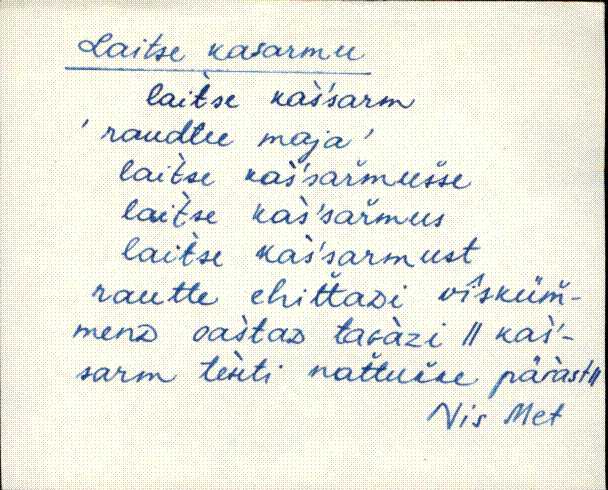 Laitse kasarmu
laìtse kaš̀'sarm
'raudtee maja'
laìtse kaš̀'sař̌mušse
laìtse kaš̀'sař̌mus
laìtse kaš̀'sarmust
rautte ehiťťaᴅi vîsküm̆-
menᴅ oàštaᴅ taɢàzi || kaš̀'-
sarm teh̀ti nať̌tukke päràst ||
Nis Met